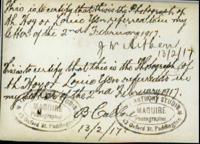 This is to certify that this is the Photograph of
Mr Hoy or Louie Yon referred in my
letter of the 2nd February 1917.
13/2/17
This is to certify that this is the Photograph of
Mr Hoy or Louie Yon referred in
my letter of the 2nd February 1917.
ANTHONY STUDIO
MAGUIRE
Photographer
Oxford St. Paddington
13/2/17
MAGUIRE
Photographer
Oxford St. Paddington